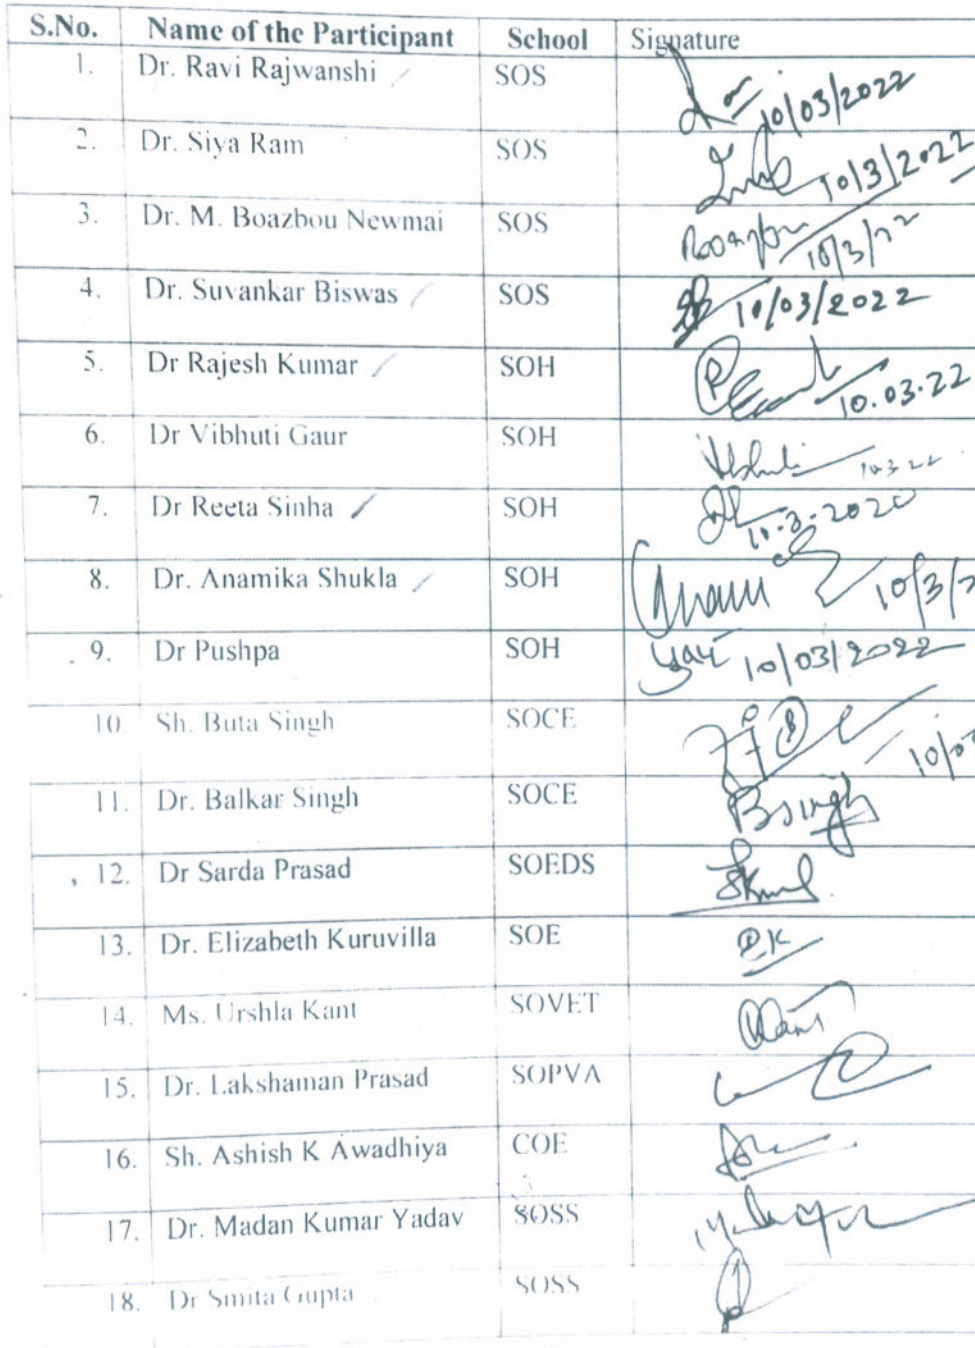 S.No. Name of the Participant School Signature
1. Dr. Ravi Rajwanshi SOS 10/03/2022
2. Dr. Siya Ram SOS 10/3/2022
3. Dr. M. Boazbou Newmai SOS 10/3/22
4. Dr. Suvankar Biswas SOS 10/03/2022
5. Dr Rajesh Kumar SOH 10.03.22
6. Dr Vibhuti Gaur SOH 10.3.22
7. Dr Reeta Sinha SOH 10-3-2020
8. Dr. Anamika Shukla SOH 10/3/2
9. Dr Pushpa SOH 10/03/2022
10. Sh. Buta Singh SOCE 10/0
11. Dr. Balkar Singh SOCE BSingh
12. Dr Sarda Prasad SOEDS
13. Dr. Elizabeth Kuruvilla SOE EK
14. Ms. Urshla Kant SOVET
15. Dr. Lakshaman Prasad SOPVA
16. Sh. Ashish K Awadhiya COE
17. Dr. Madan Kumar Yadav SOSS
18. Dr Smita Gupta SOSS